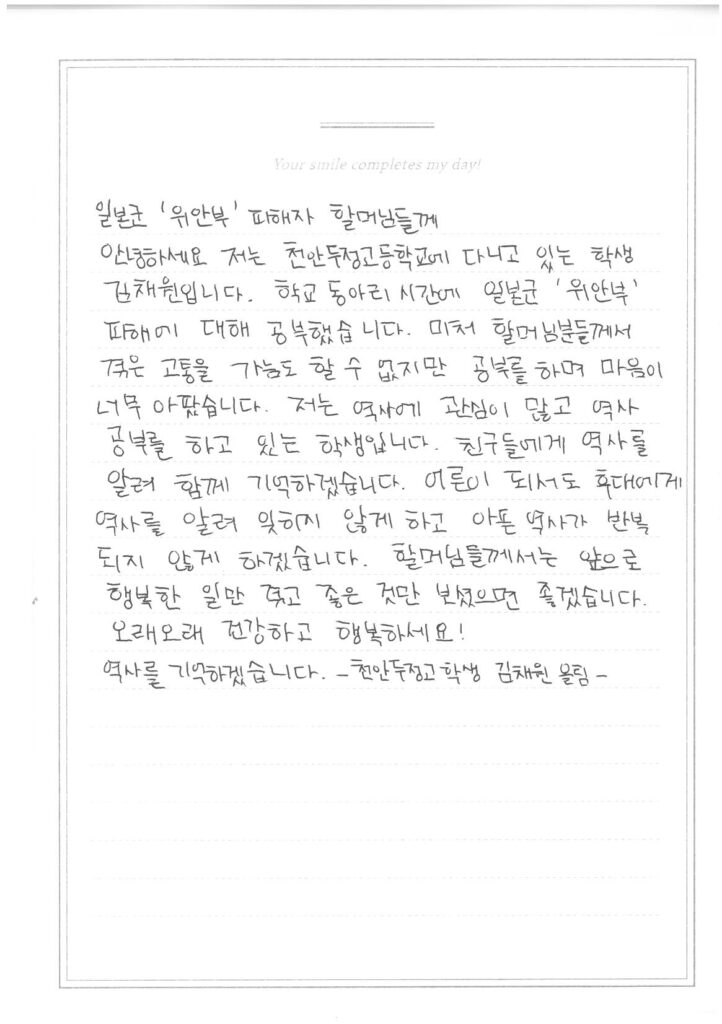 Your smile completes my day!
일본군 '위안부' 피해자 할머님들께
안녕하세요 저는 천안두정고등학교에 다니고 있는 학생
김채원입니다. 학교 동아리 시간에 일본군 '위안부'
피해에 대해 공부했습니다. 미처 할머님분들께서
겪은 고통을 가늠도 할 수 없지만 공부를 하며 마음이
너무 아팠습니다. 저는 역사에 관심이 많고 역사
공부를 하고 있는 학생입니다. 친구들에게 역사를
알려 함께 기억하겠습니다. 어른이 되서도 후대에게
역사를 알려 잊히지 않게 하고 아픈 역사가 반복
되지 않게 하겠습니다. 할머님들께서는 앞으로
행복한 일만 겪고 좋은 것만 보셨으면 좋겠습니다.
오래오래 건강하고 행복하세요!
역사를 기억하겠습니다. - 천안두정고 학생 김채원 올림 -